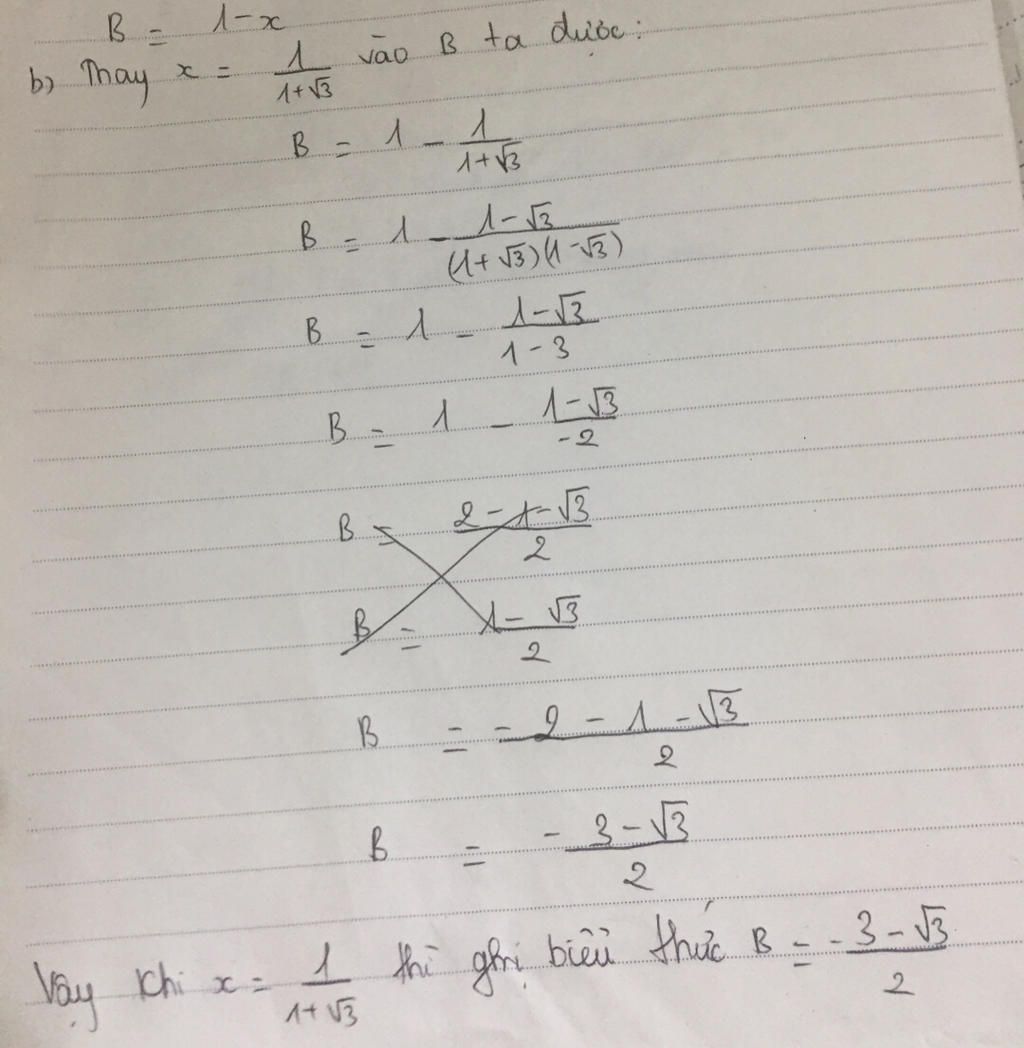 B = 1-x
b) Thay x = \frac{1}{1+√3} vào B ta được:
B = 1 - \frac{1}{1+√3}
B = 1 - \frac{1-√3}{(1+√3)(1-√3)}
B = 1 - \frac{1-√3}{1-3}
B = 1 - \frac{1-√3}{-2}
B = \frac{2-1-√3}{2}
B = \frac{1-√3}{2}
B = \frac{-2-1-√3}{2}
B = \frac{-3-√3}{2}
Vậy khi x = \frac{1}{1+√3} thì gtrị biểu thức B = \frac{-3-√3}{2}